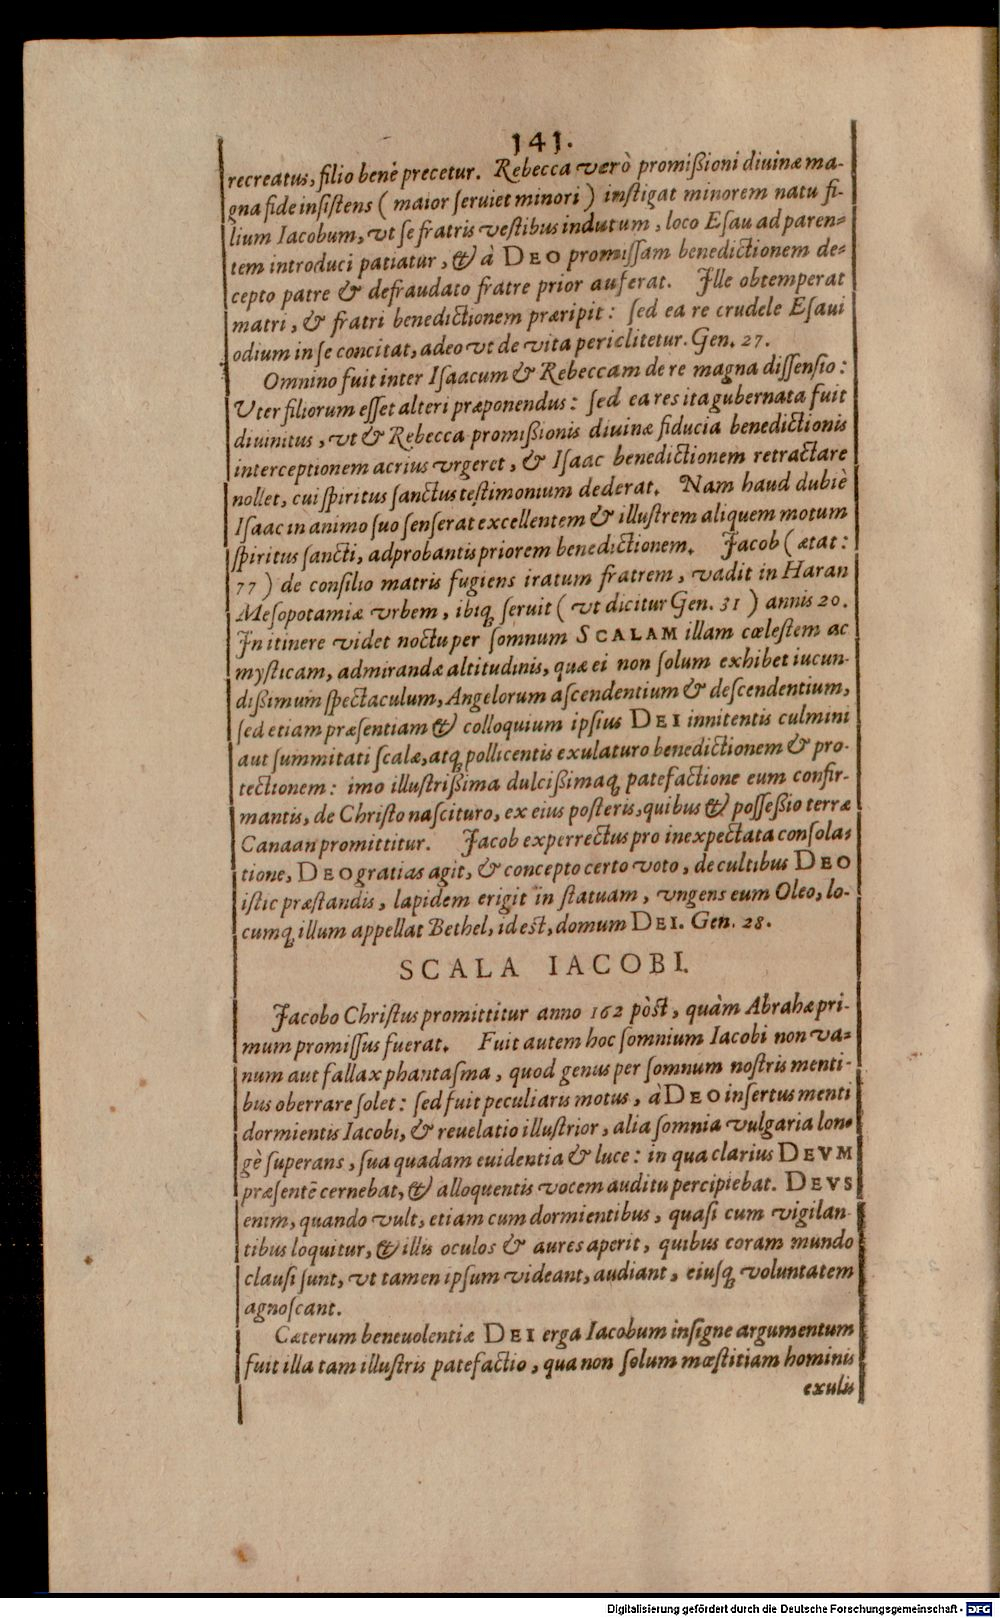 141.
recreatus, filio benè precetur. Rebecca verò promißioni diuinæ ma-
gna fide insistens ( maior seruiet minori ) instigat minorem natu fi-
lium Iacobum, vt se fratris vestibus indutum, loco Esau ad paren-
tem introduci patiatur, & à DEO promissam benedictionem de-
cepto patre & defraudato fratre prior auferat. Ille obtemperat
matri, & fratri benedictionem præripit: sed ea re crudele Esaui
odium in se concitat, adeo vt de vita periclitetur. Gen. 27.
Omnino fuit inter Isaacum & Rebeccam de re magna dissensio:
Vter filiorum esset alteri præponendus: sed ea res ita gubernata fuit
diuinitus, vt & Rebecca promißionis diuinæ fiducia benedictionis
interceptionem acrius vrgeret, & Isaac benedictionem retractare
nollet, cui spiritus sanctus testimonium dederat. Nam haud dubiè
Isaac in animo suo senserat excellentem & illustrem aliquem motum
spiritus sancti, adprobantis priorem benedictionem. Jacob ( ætat:
77 ) de consilio matris fugiens iratum fratrem, vadit in Haran
Mesopotamiæ vrbem, ibiq́ seruit ( vt dicitur Gen. 31 ) annis 20.
In itinere videt noctu per somnum SCALAM illam cœlestem ac
mysticam, admirandæ altitudinis, quæ ei non solum exhibet iucun-
dißimum spectaculum, Angelorum ascendentium & descendentium,
sed etiam præsentiam & colloquium ipsius DEI innitentis culmini
aut summitati scalæ, atq́ pollicentis exulaturo benedictionem & pro-
tectionem: imo illustrißima dulcißimaq́ patefactione eum confir-
mantis, de Christo nascituro, ex eius posteris, quibus & possessio terræ
Canaan promittitur. Jacob experrectus pro inexpectata consola-
tione, DEO gratias agit, & concepto certo voto, de cultibus DEO
istic præstandis, lapidem erigit in statuam, vngens eum Oleo, lo-
cumq́ illum appellat Bethel, id est, domum DEI. Gen. 28.
SCALA IACOBI.
Jacobo Christus promittitur anno 162 pòst, quàm Abrahæ pri-
mum promissus fuerat. Fuit autem hoc somnium Iacobi non va-
num aut fallax phantasma, quod genus per somnum nostris menti-
bus oberrare solet: sed fuit peculiaris motus, à DEO insertus menti
dormientis Iacobi, & reuelatio illustrior, alia somnia vulgaria lon-
gè superans, sua quadam euidentia & luce: in qua clarius DEVM
præsentē cernebat, & alloquentis vocem auditu percipiebat. DEVS
enim, quando vult, etiam cum dormientibus, quasi cum vigilan-
tibus loquitur, & illis oculos & aures aperit, quibus coram mundo
clausi sunt, vt tamen ipsum videant, audiant, eiusq́ voluntatem
agnoscant.
Cæterum beneuolentiæ DEI erga Iacobum insigne argumentum
fuit illa tam illustris patefactio, qua non solum mœstitiam hominis
exulis
Digitalisierung gefördert durch die Deutsche Forschungsgemeinschaft - DFG